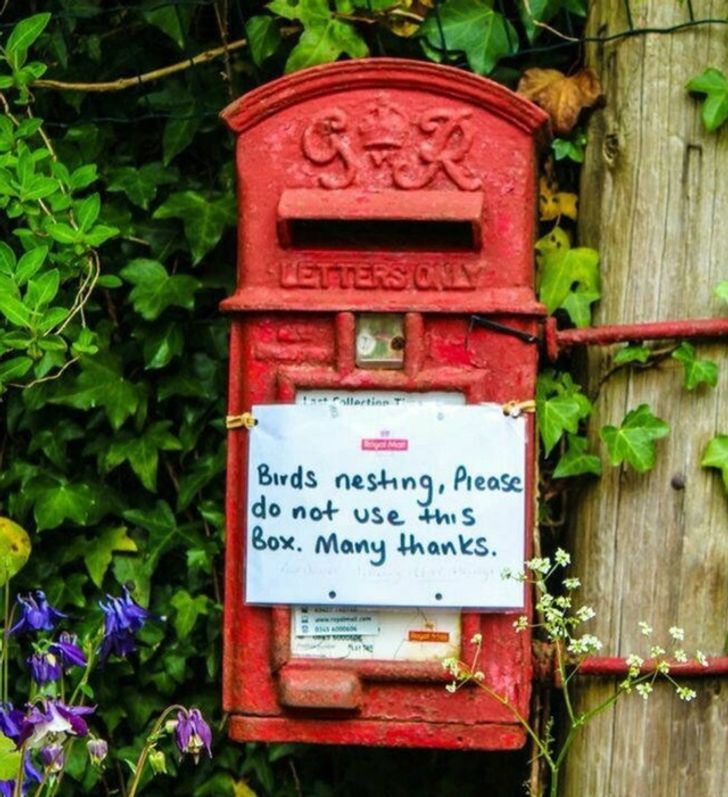 G R
LETTERS ONLY
7
Last Collection Ti
Royal Mail
Birds nesting, Please
do not use this
Box. Many thanks.
www.royalmail.com
0345 6000606
Royal Mail